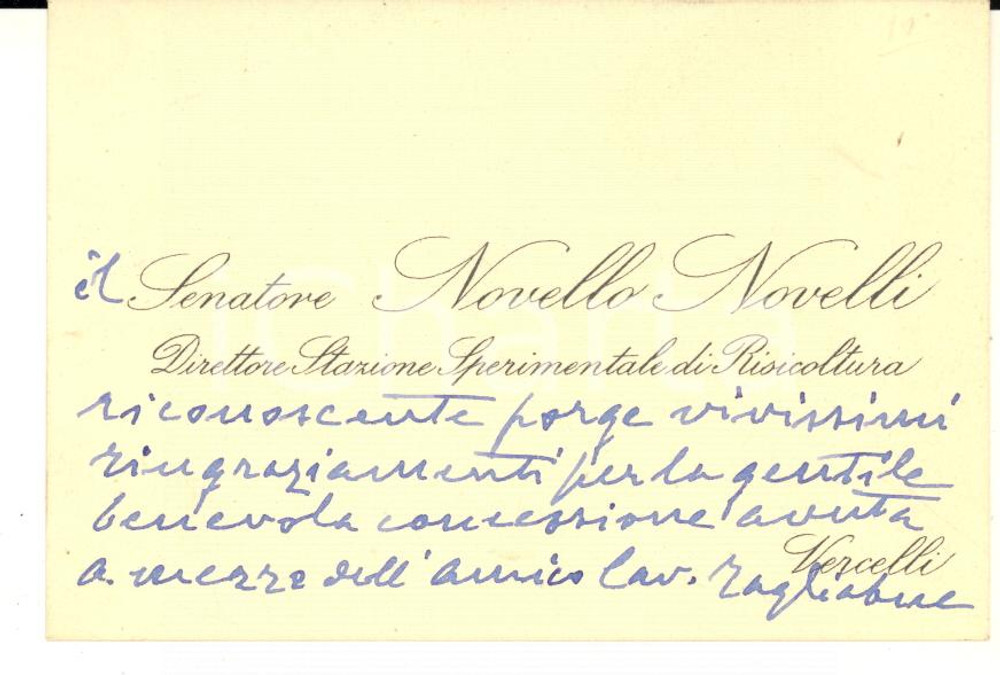 il Senatore Novello Novelli
Direttore Stazione Sperimentale di Risicoltura
riconoscente porge vivissimi
ringraziamenti per la gentile
benevola concessione avuta
Vercelli
a mezzo dell'amico Cav. Tagliabue